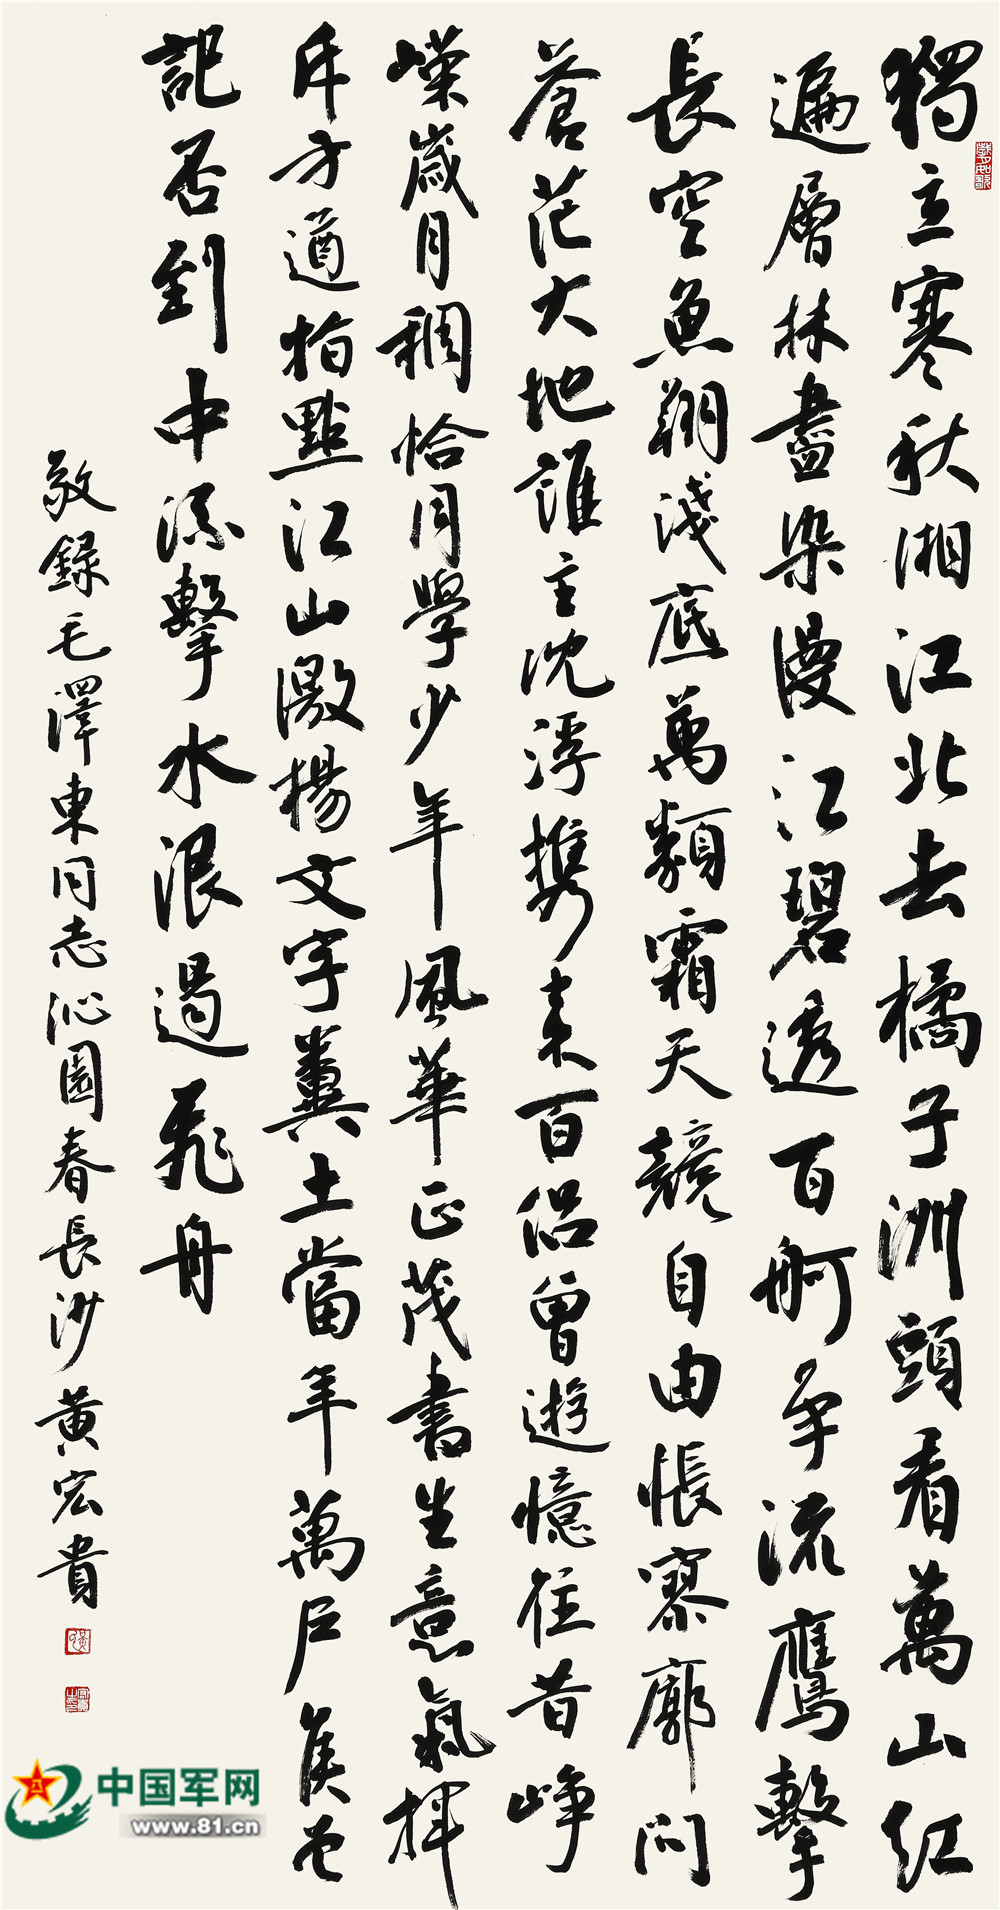 獨立寒秋湘江北去橘子洲頭看萬山紅
遍層林盡染漫江碧透百舸争流鷹擊
長空魚翔淺底萬類霜天競自由悵寥廓問
蒼茫大地誰主沈浮携來百侶曾遊憶往昔崢
嶸歲月稠恰同學少年風華正茂書生意氣揮
斥方遒指點江山激揚文字糞土當年萬戶侯曾
記否到中流擊水浪遏飛舟
敬錄毛澤東同志沁園春長沙黃宏貴
中国军网
www.81.cn